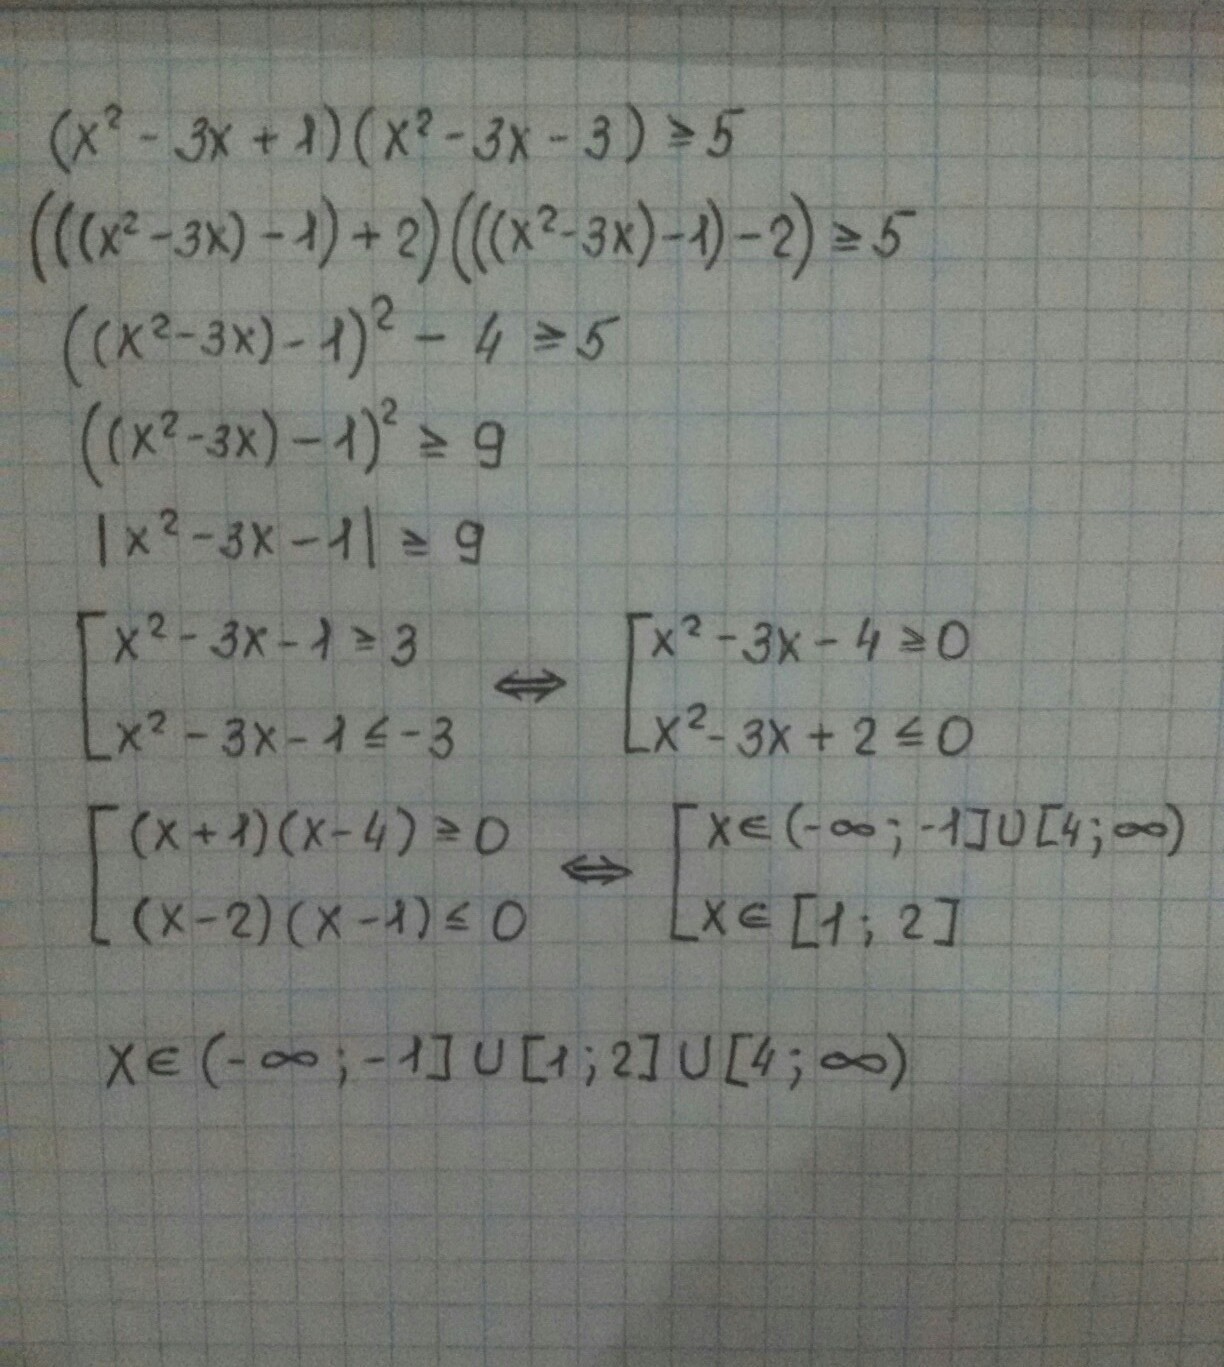 (x² - 3x + 1)(x² - 3x - 3) ≥ 5
(((x² - 3x) - 1) + 2)(((x² - 3x) - 1) - 2) ≥ 5
((x² - 3x) - 1)² - 4 ≥ 5
((x² - 3x) - 1)² ≥ 9
|x² - 3x - 1| ≥ 9
[ x² - 3x - 1 ≥ 3 ⇔ [ x² - 3x - 4 ≥ 0
x² - 3x - 1 ≤ -3 x² - 3x + 2 ≤ 0
[ (x + 1)(x - 4) ≥ 0 ⇔ [ x ∈ (-∞; -1] ∪ [4; ∞)
(x - 2)(x - 1) ≤ 0 x ∈ [1; 2]
x ∈ (-∞; -1] ∪ [1; 2] ∪ [4; ∞)